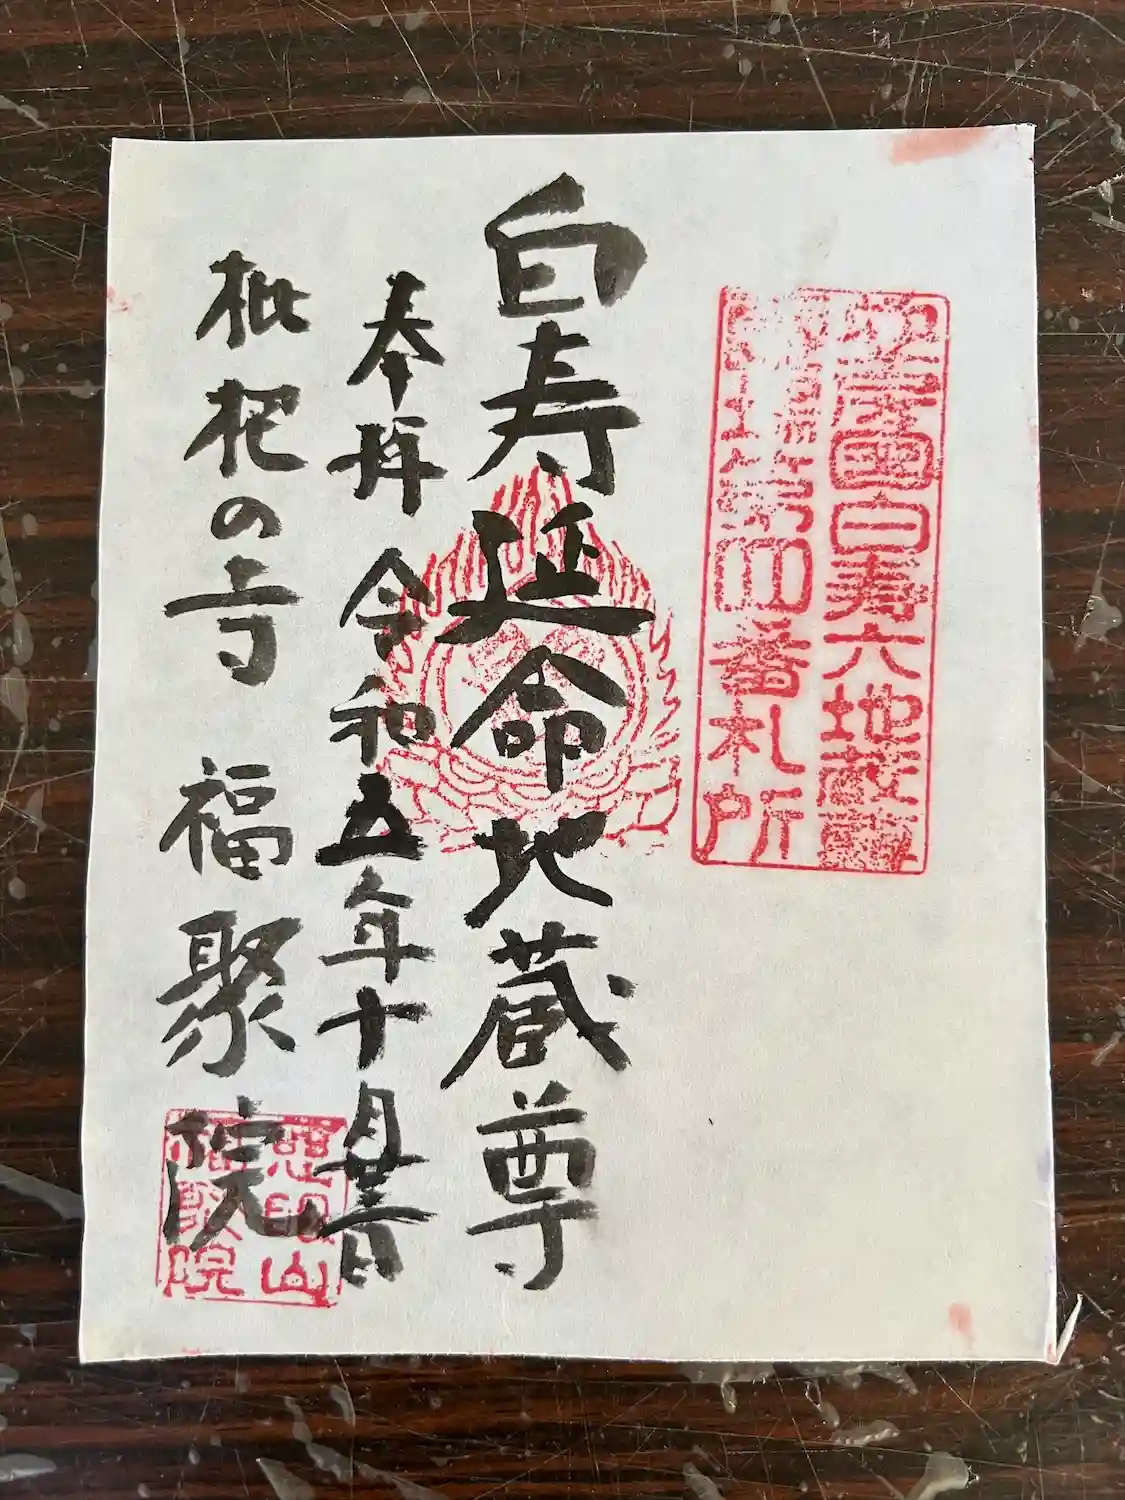 白寿六地蔵
第四番札所
白寿延命地蔵尊
奉拝 令和五年十月廿一日
枇杷の寺 福聚院
山
福聚院